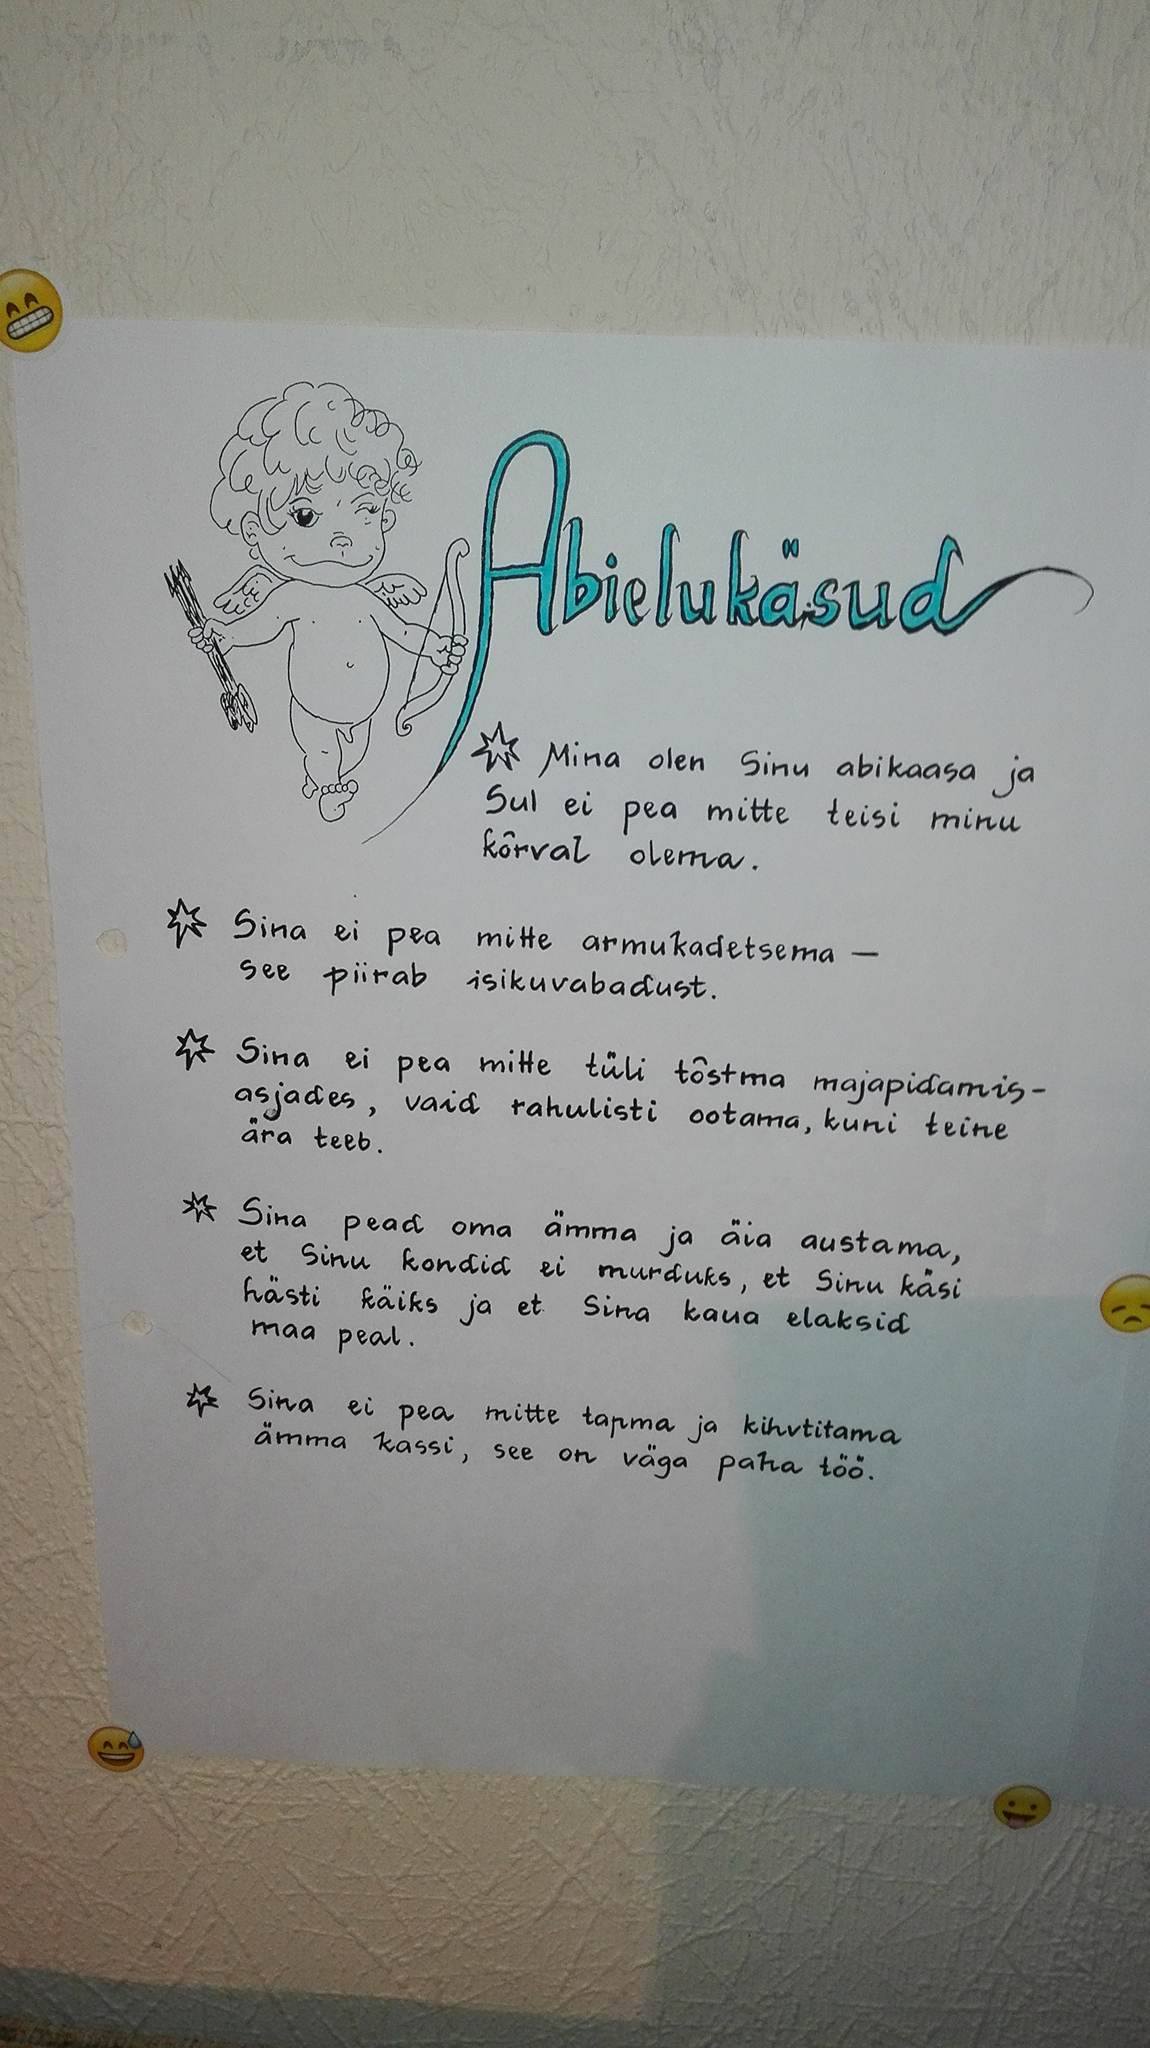 Abielukäsud
Mina olen Sinu abikaasa ja
Sul ei pea mitte teisi minu
kõrval olema.
Sina ei pea mitte armukadetsema —
see piirab isikuvabadust.
Sina ei pea mitte tüli tõstma majapidamis-
asjades, vaid rahulisti ootama, kuni teine
ära teeb.
Sina pead oma ämma ja äia austama,
et Sinu kondid ei murduks, et Sinu käsi
hästi käiks ja et Sina kaua elaksid
maa peal.
Sina ei pea mitte tapma ja kihvtitama
ämma kassi, see on väga paha töö.